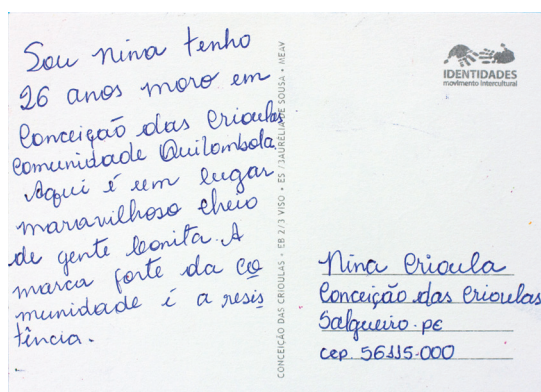 Sou nina tenho
26 anos moro em
Conceição das Crioulas
Comunidade Quilombola.
Aqui é um lugar
maravilhoso cheio
de gente bonita. A
marca forte da co
munidade é a resis
tência.
CONCEIÇÃO DAS CRIOULAS • EB 2/3 VISO • ES / JAURÉLIA DE SOUSA • MEAV
IDENTIDADES
movimento intercultural
Nina Crioula
Conceição das Crioulas
Salgueiro - PE
Cep. 56115-000